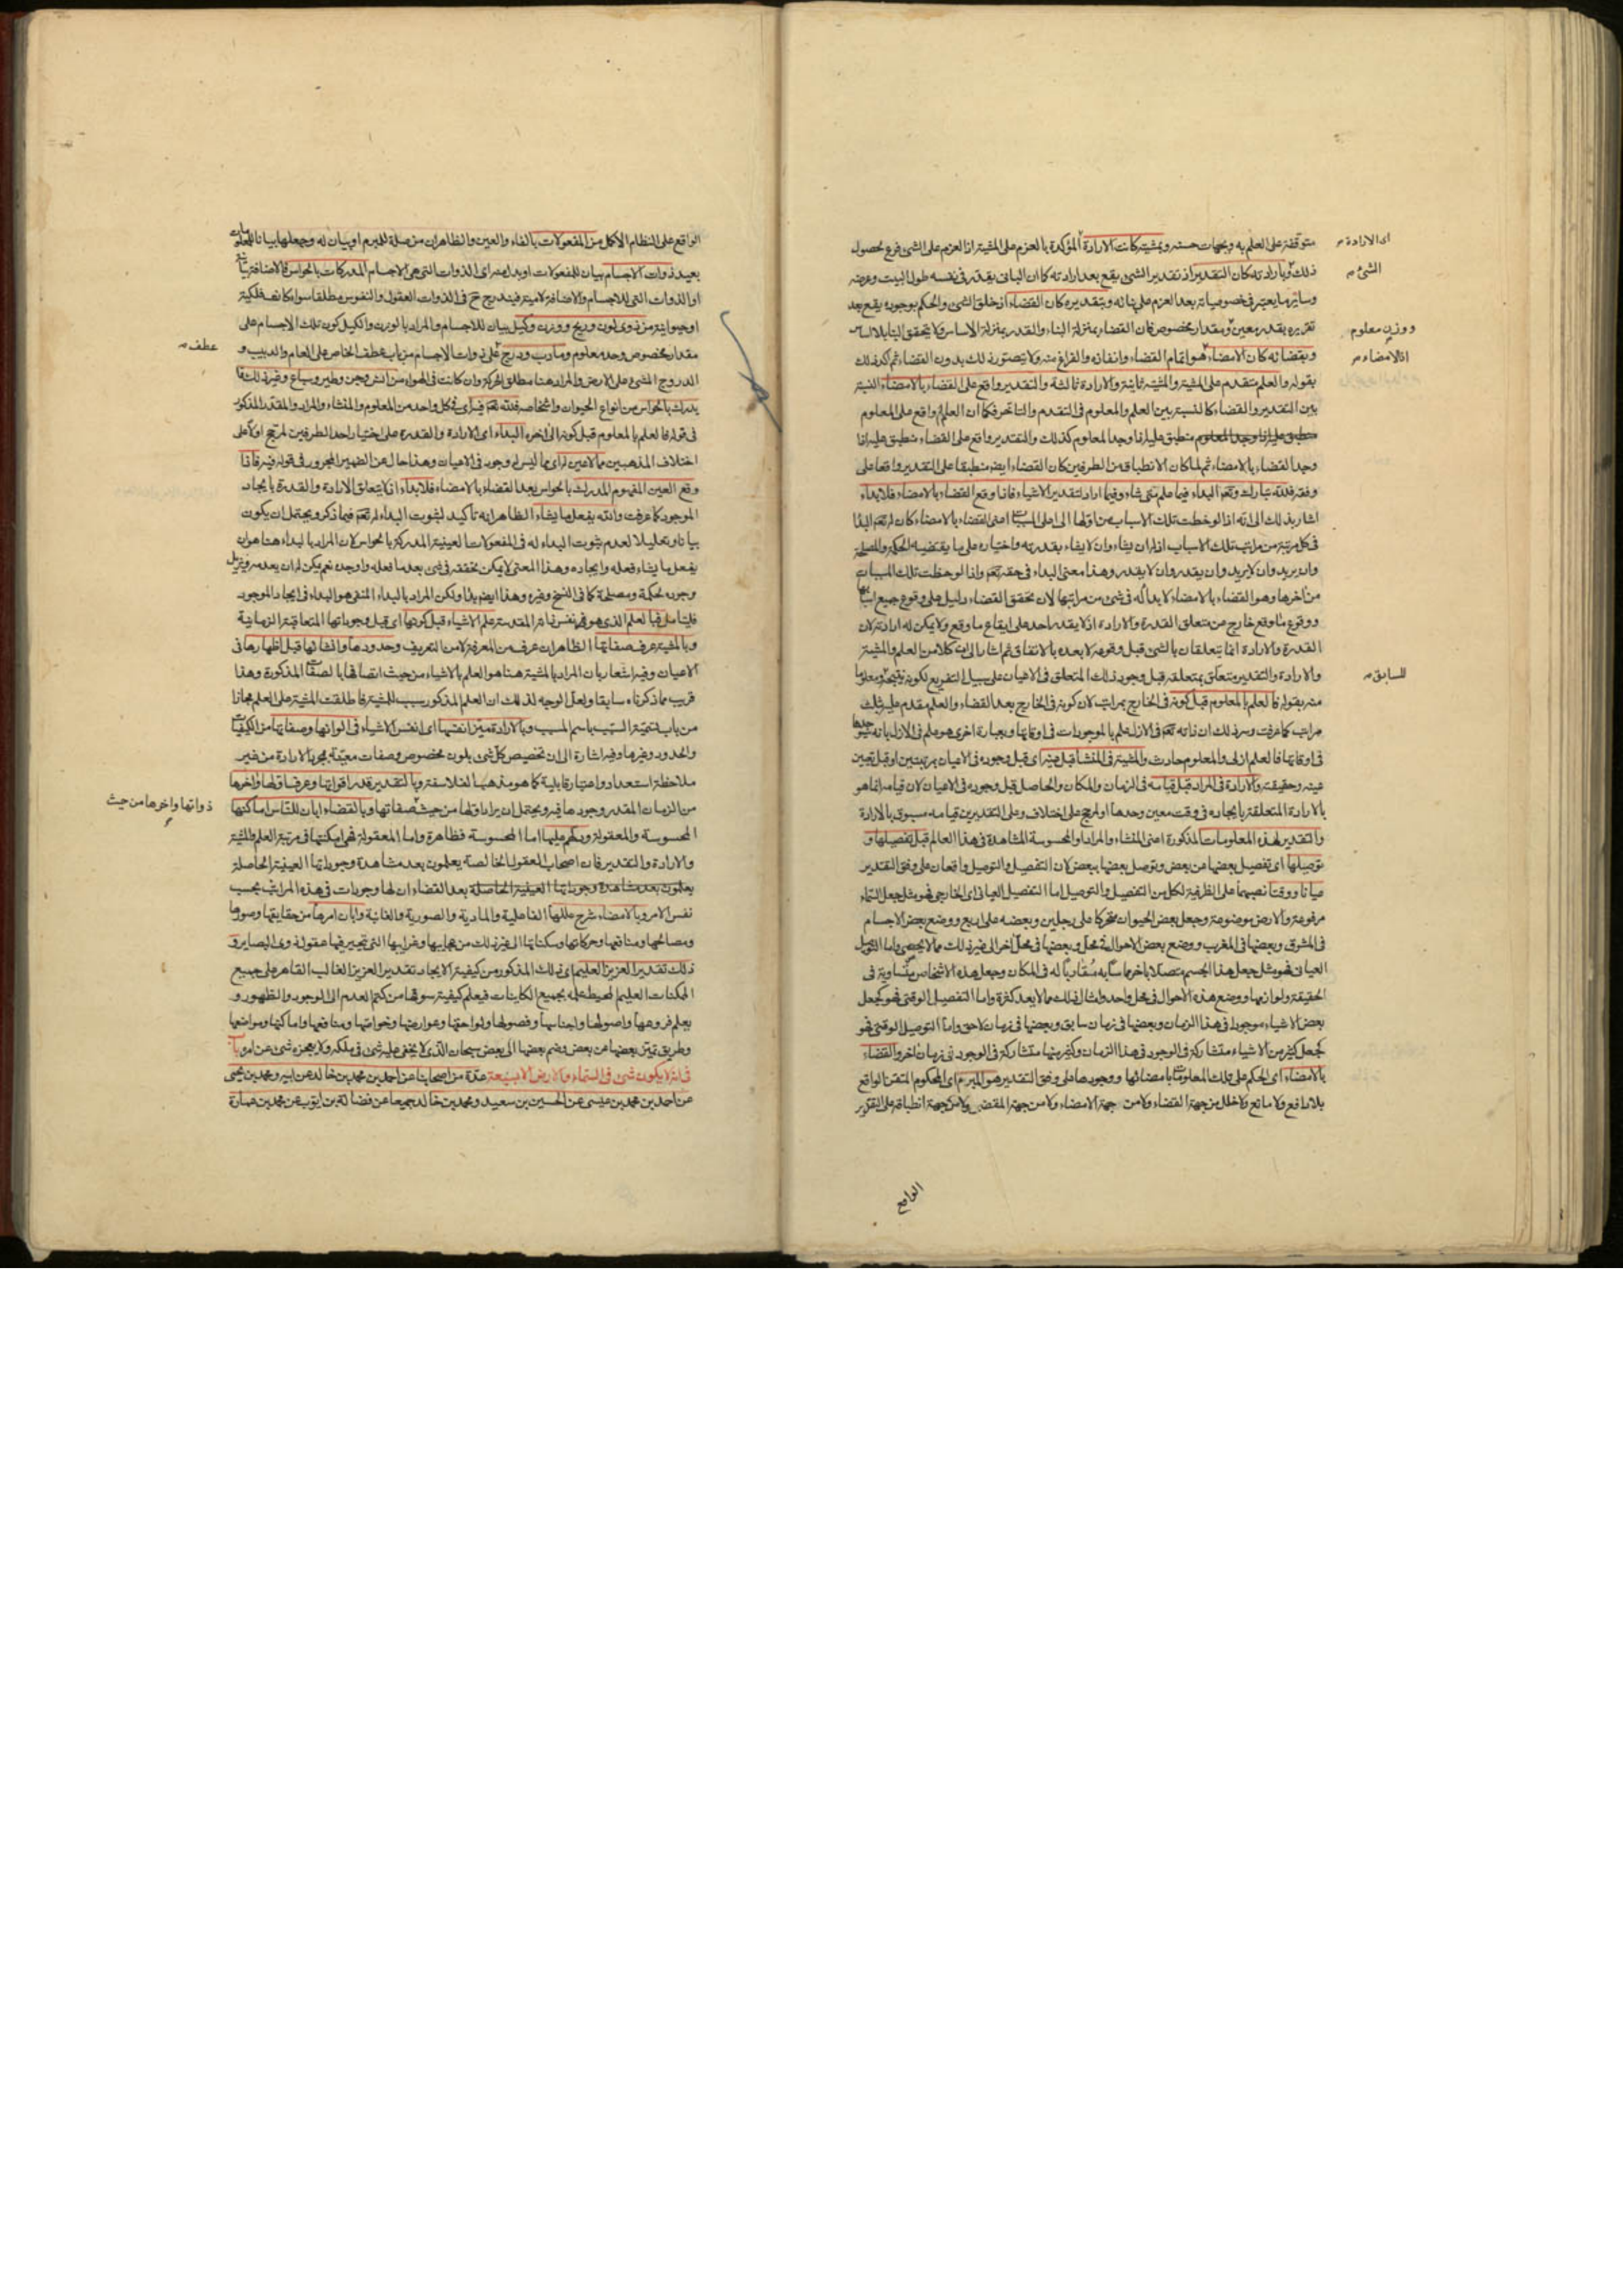 متوقفة على العلم به وبجهات حسنه وبمشيته كانت الارادة المؤكدة بالعزم على المشية اذ العزم على الشئ فرع لحصول
ذلك وبارادته كان التقدير اذ تقدير الشئ يقع بعد ارادته كما ان البانى يقدر فى نفسه طول البيت وعرضه
وسائر ما يعتبر فى خصوصياته بعد العزم على بنائه وبتقديره كان القضاء اذ خلق الشئ والحكم بوجوده يقع بعد
تقديره بقدر معين ومقدار مخصوص فان القضاء بمنزلة البناء والقدر بمنزلة الاساس ولا يتحقق البناء بلا اساس
وبقضائه كان الامضاء هو اتمام القضاء وانفاذه والفراغ منه ولا يتصور ذلك بدون القضاء ثم اكد ذلك
بقوله والعلم متقدم على المشية والمشية ثانية والارادة ثالثة والتقدير واقع على القضاء بالامضاء النسبة
بين التقدير والقضاء كالنسبة بين العلم والمعلوم فى التقدم والتاخر فكما ان العلم واقع على المعلوم
منطبق عليه اذا وجد المعلوم كذلك والتقدير واقع على القضاء منطبق عليه اذا
وجد القضاء بالامضاء ثم لما كان الانطباق من الطرفين كان القضاء ايضا منطبقا على التقدير واقعا على
وفقه فلله تبارك وتعالى البداء فيما علم متى شاء وفيما اراد لتقدير الاشياء فاذا وقع القضاء بالامضاء فلا بداء
اشار بذلك الى انه اذا لوحظت تلك الاسباب من اولها الى اعلى المسببات اعنى القضاء بالامضاء كان له تعالى البداء
فى كل مرتبة من مراتب تلك الاسباب اذ له ان يشاء وان لا يشاء بقدرته واختياره على ما يقتضيه الحكمة والمصلحة
وان يريد وان لا يريد وان يقدر وان لا يقدر وهذا معنى البداء فى حقه تعالى واذا لوحظت تلك المسببات
من اخرها وهو القضاء بالامضاء لا بداء له فى شئ من مراتبها لان تحقق القضاء دليل على وقوع جميع اسبابها
ووقوع ما وقع خارج من متعلق القدرة والارادة اذ لا يقدر احد على ايقاع ما وقع ولا يمكن له ارادته لان
القدرة والارادة انما يتعلقان بالشئ قبل وقوعه لا بعده بالاتفاق ثم اشار الى ان كلا من العلم والمشية
والارادة والتقدير متعلق بمتعلقه قبل وجود ذلك المتعلق فى الاعيان على سبيل التفريع لكونه نتيجة ومعلوما
منه بقوله فالعلم بالمعلوم قبل كونه فى الخارج بمراتب لان كونه فى الخارج بعد القضاء والعلم مقدم عليه بثلث
مراتب كما عرفت وسر ذلك ان ذاته تعالى فى الازل علم بالموجودات فى اوقاتها وبعبارة اخرى هو علم فى الازل بانه سيوجدها
فى اوقاتها فالعلم ازلى والمعلوم حادث والمشية فى المنشأ قبل عينه اى قبل وجوده فى الاعيان بمرتبتين او قبل تعين
عينه وحقيقته والارادة فى المراد قبل قيامه فى الزمان والمكان والحاصل قبل وجوده فى الاعيان لان قيامه انما هو
بالارادة المتعلقة بايجاده فى وقت معين وحدها او لمرجح على اختلاف وعلى التقديرين قيامه مسبوق بالارادة
والتقدير لهذه المعلومات المذكورة اعنى المنشاء والمراد والمحسوسة المشاهدة فى هذا العالم قبل تفصيلها و
توصيلها اى تفصيل بعضها من بعض وتوصل بعضها ببعض لان التفصيل والتوصيل واقعان على وفق التقدير
عيانا ووقتا نصبهما على الظرفية لكل من التفصيل والتوصيل اما التفصيل العيانى اى الخارجى فهو مثل جعل السماء
مرفوعة والارض موضوعة وجعل بعض الحيوان متحركا على رجلين وبعضه على اربع ووضع بعض الاجسام
فى المشرق وبعضها فى المغرب ووضع بعض الاحوال فى محل وبعضها فى محل اخر الى غير ذلك مما لا يحصى واما التوصيل
العيانى فهو مثل جعل هذا الجسم متصلا باخر مماسا به متقاربا له فى المكان وجعل هذه الاشخاص متساوية فى
الحقيقة ولوازمها ووضع هذه الاحوال فى محل واحد وامثال ذلك مما لا يعد كثرة واما التفصيل الوقتى فهو كجعل
بعض الاشياء موجودا فى هذا الزمان وبعضها فى زمان سابق وبعضها فى زمان لاحق واما التوصيل الوقتى فهو
كجعل كثير من الاشياء متشاركة فى الوجود فى هذا الزمان وكثير منها متشاركة فى الوجود فى زمان اخر والقضاء
بالامضاء اى الحكم على تلك المعلومات بامضائها ووجودها على وفق التقدير هو المبرم اى المحكوم المتقن الواقع
بلا دافع ولا مانع ولا خلل من جهة القضاء ولا من جهة الامضاء ولا من جهة المقضى ولا من جهة انطباقه على التقدير
اى الارادة
الشئ
ووزن معلوم
اذ الامضاء
السابق
الواقع
الواقع على النظام الاكمل من المفعولات بالفاء والعين والظاهر ان من صلة للمبرم او بيان له وجعلها بيانا للمعلومات
بعيد ذوات الاجسام بيان للمفعولات او بدل منه اى الذوات التى هى الاجسام المدركات بالحواس فالاضافة بيانية
او الذوات التى للاجسام والاضافة لامية فيندرج ح فى الذوات العقول والنفوس مطلقا سواء كانت فلكية
او حيوانية من ذوى لون وريح ووزن وكيل بيان للاجسام والمراد بالوزن والكيل كون تلك الاجسام على
مقدار مخصوص وحد معلوم وما دب ودرج على ذوات الاجسام من باب عطف الخاص على العام والدبيب و
الدروج المشى على الارض والمراد هنا مطلق الحركة وان كانت فى الهواء من انس وجن وطير وسباع وغير ذلك مما
يدرك بالحواس من انواع الحيوان واشخاصه فلله تعالى فيه اى فى كل واحد من المعلوم والمنشاء والمراد والمقدر المذكور
فى قوله فالعلم بالمعلوم قبل كونه الى اخره البداء اى الارادة والقدرة على اختيار احد الطرفين لمرجح اولا على
اختلاف المذهبين مما لا عين له اى مما ليس له وجود فى الاعيان وهذا حال عن الضمير المجرور فى قوله فيه فاذا
وقع العين المفهوم المدرك بالحواس بعد القضاء بالامضاء فلا بداء اذ لا يتعلق الارادة والقدرة بايجاد
الموجود كما عرفت والله يفعل ما يشاء الظاهر انه تاكيد لثبوت البداء له تعالى فيما ذكر ويحتمل ان يكون
بيانا وتعليلا لعدم ثبوت البداء له فى المفعولات العينية المدركة بالحواس لان المراد بالبداء هنا هو ان
يفعل ما يشاء فعله وايجاده وهذا المعنى لا يمكن تحققه فى شئ بعد ما فعله واوجده نعم يمكن له ان يعدمه ويزيل
وجوده لحكمة ومصلحة كما فى النسخ وغيره وهذا ايضا بداء ولكن المراد بالبداء المنفى هو البداء فى ايجاد الموجود
فليتأمل فبالعلم الذى هو نفس ذاته المقدسة علم الاشياء قبل كونها اى قبل وجوداتها المتعاقبة الزمانية
وبالمشية عرف صفاتها الظاهر ان عرف من المعرفة لا من التعريف وحدودها وانشائها قبل اظهارها فى
الاعيان وفيه اشعار بان المراد بالمشية هنا هو العلم بالاشياء من حيث اتصافها بالصفات المذكورة وهذا
قريب مما ذكرناه سابقا ولعل الوجه لذلك ان العلم المذكور سبب للمشية فاطلقت المشية على العلم مجازا
من باب تسمية السبب باسم المسبب وبالارادة ميز انفسها اى انفس الاشياء فى الوانها وصفاتها من الكيفيات
والحدود وغيرها وفيه اشارة الى ان تخصيص كل شئ بلون مخصوص وصفات معينة بمجرد الارادة من غير
ملاحظة استعداد واعتبار قابلية كما هو مذهب الفلاسفة وبالتقدير قدر اقواتها وعرف اولها واخرها
من الزمان المقدر وجودها فيه ويحتمل ان يراد اولها من حيث صفاتها وبالقضاء ابان للناس اماكنها
المحسوسة والمعقولة ودلهم عليها اما المحسوسة فظاهرة واما المعقولة فهى امكنتها فى مرتبة العلم والمشية
والارادة والتقدير فان اصحاب العقول الخالصة يعلمون بعد مشاهدة وجوداتها العينية الحاصلة
يعلمون بعد مشاهدة وجوداتها العينية الحاصلة بعد القضاء ان لها وجودات فى هذه المراتب بحسب
نفس الامر وبالامضاء شرح عللها الفاعلية والمادية والصورية والغائية وابان امرها من حقايقها وصورها
ومصالحها ومنافعها وحركاتها وسكناتها الى غير ذلك من عجايبها وغرايبها التى تتحير فيها عقول ذوى البصاير و
ذلك تقدير العزيز العليم اى ذلك المذكور من كيفية الايجاد تقدير العزيز الغالب القاهر على جميع
الممكنات العليم المحيط علمه بجميع الكاينات فيعلم كيفية سوقها من كتم العدم الى الوجود والظهور و
يعلم فروعها واصولها واجناسها وفصولها ولواحقها وعوارضها وخواصها ومنافعها واماكنها ومواضعها
وطريق تميز بعضها عن بعض وضم بعضها الى بعض سبحان الذى لا يخفى عليه شئ فى ملكه ولا يعجزه شئ عن امره باب
فى انه لا يكون شئ فى السماء والارض الا بسبعة عدة من اصحابنا عن احمد بن محمد بن خالد عن ابيه ومحمد بن يحيى
عن احمد بن محمد بن عيسى عن الحسين بن سعيد ومحمد بن خالد جميعا عن فضالة بن ايوب عن محمد بن عمارة
عطف
ذواتها واخرها من حيث